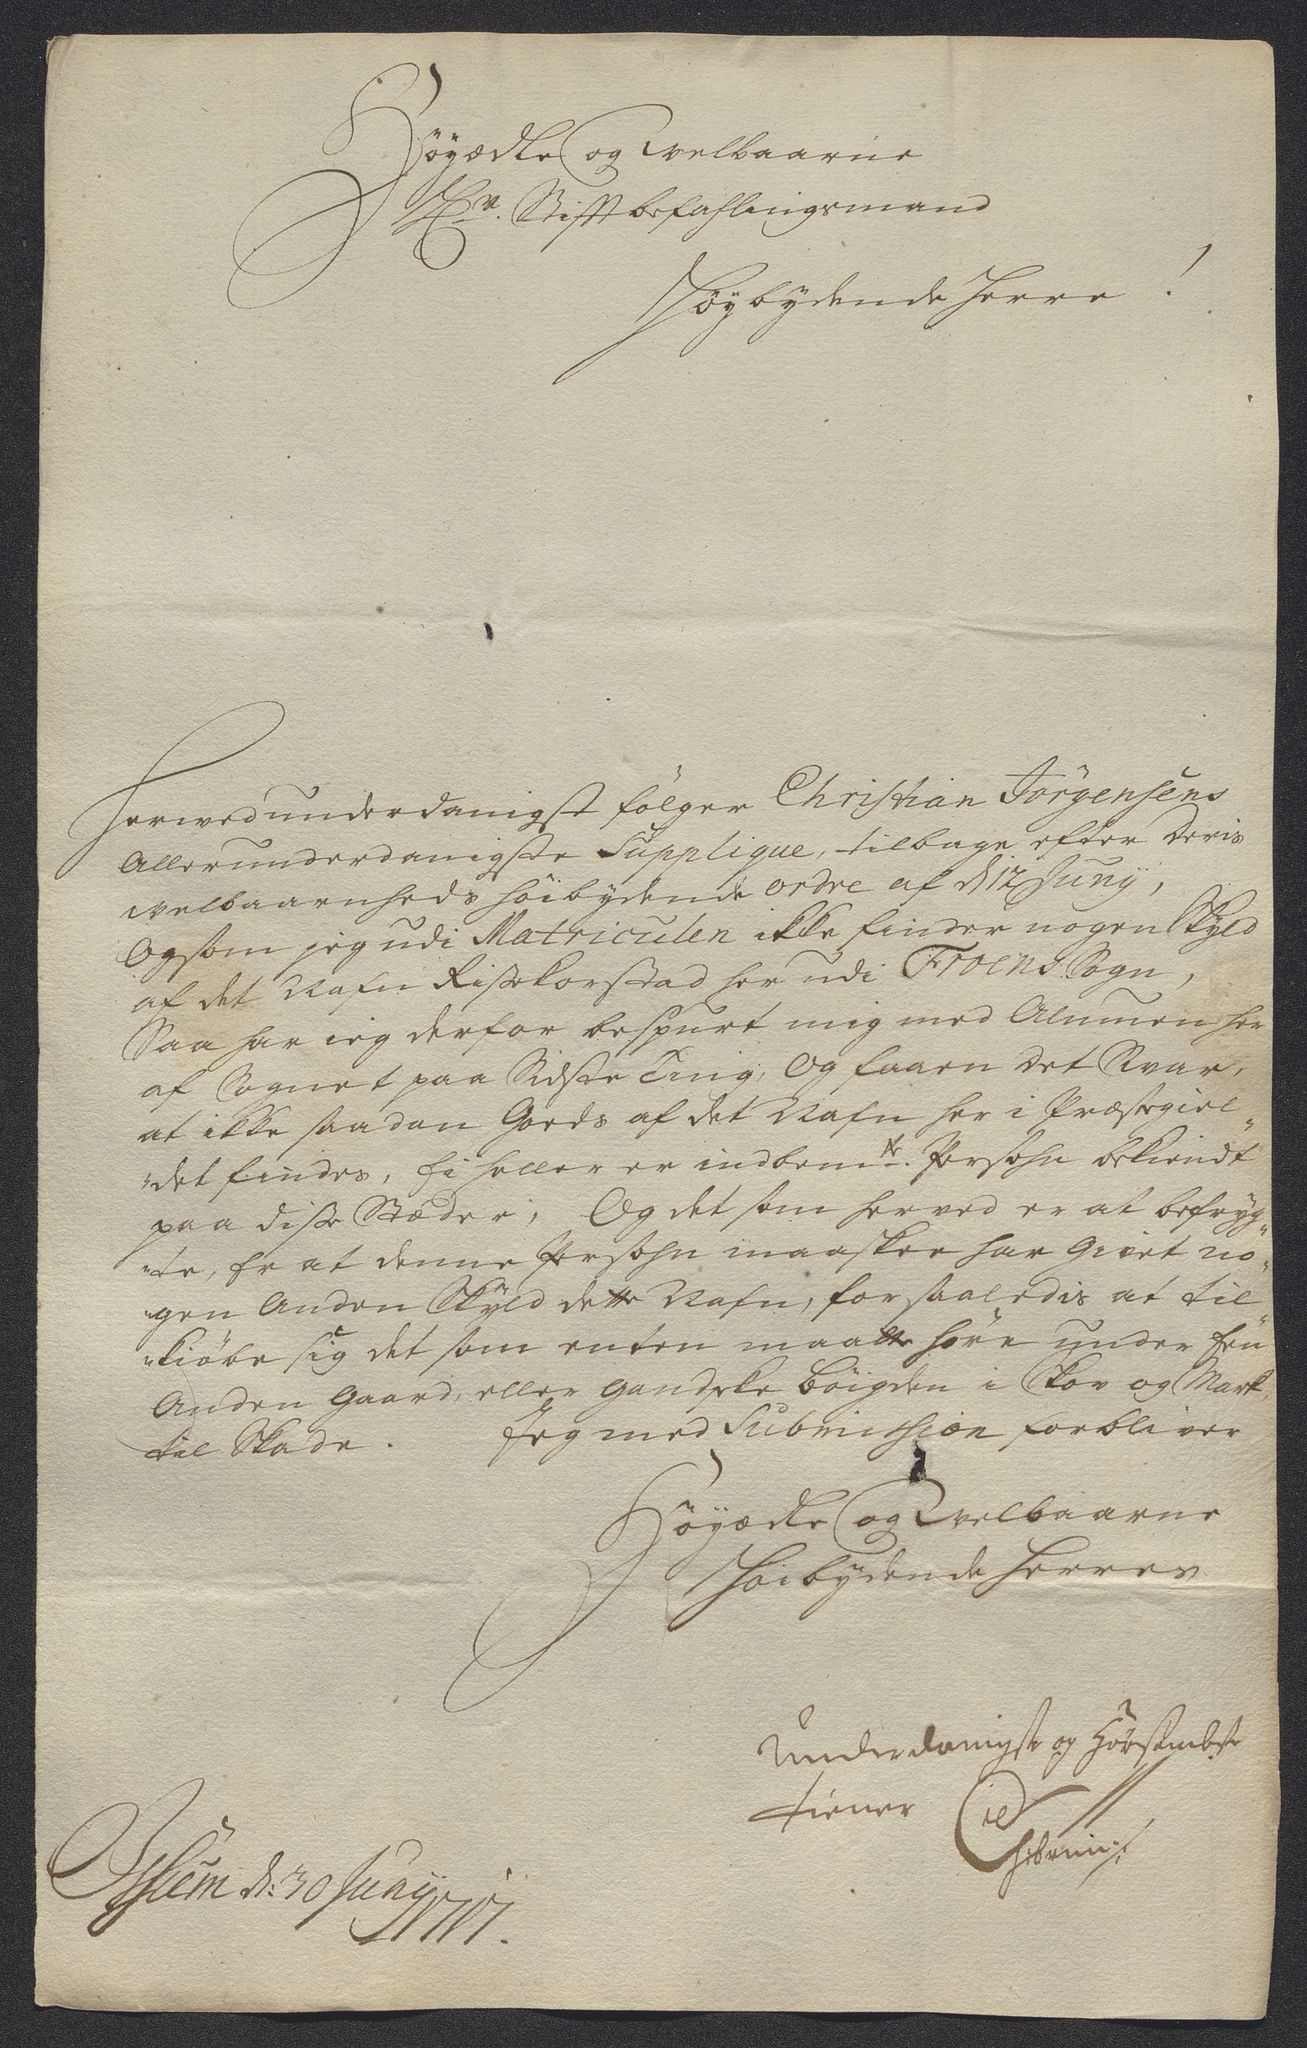 Höyædle og velbaarne
Hr. Stiftbefahlingsmand
Höybydende Herre !
Hervedunderdanigst fölger Christian Jörgensens
Allerunderdanigste Supplique, tilbage efter Deris
velbaarnheds höibydende ordre af d 12 Junij,
Og som jeg udi Matriculen ikke finder nogen Skyld
af det Nafn Risekorstad her udi Froens Sogn,
Saa har ieg derfor bespurt mig med Almuen her
af Sognet paa Sidste Ting, Og faaen det Svar,
at ikke saadan Goeds af det Nafn her i Præstegiel-
-det findes, Ei heller er indbemte. Persohn bekiendt
paa disse Stæder, Og det som herved er at befryg-
-te, Er at denne Persohn maaskee har Givet no-
-gen Anden Skyld dette Nafn, for saaledis at til-
-kiöbe sig det som enten maatte höre under Een
Anden Gaard, eller Gandske böigden i Skov og Mark,
til Skade. Jeg med Submission forbliver
Höyædle og Velbaarne
Höibydende Herres
Underdanigste og Hörsambste
tiener
d: 30 Junij